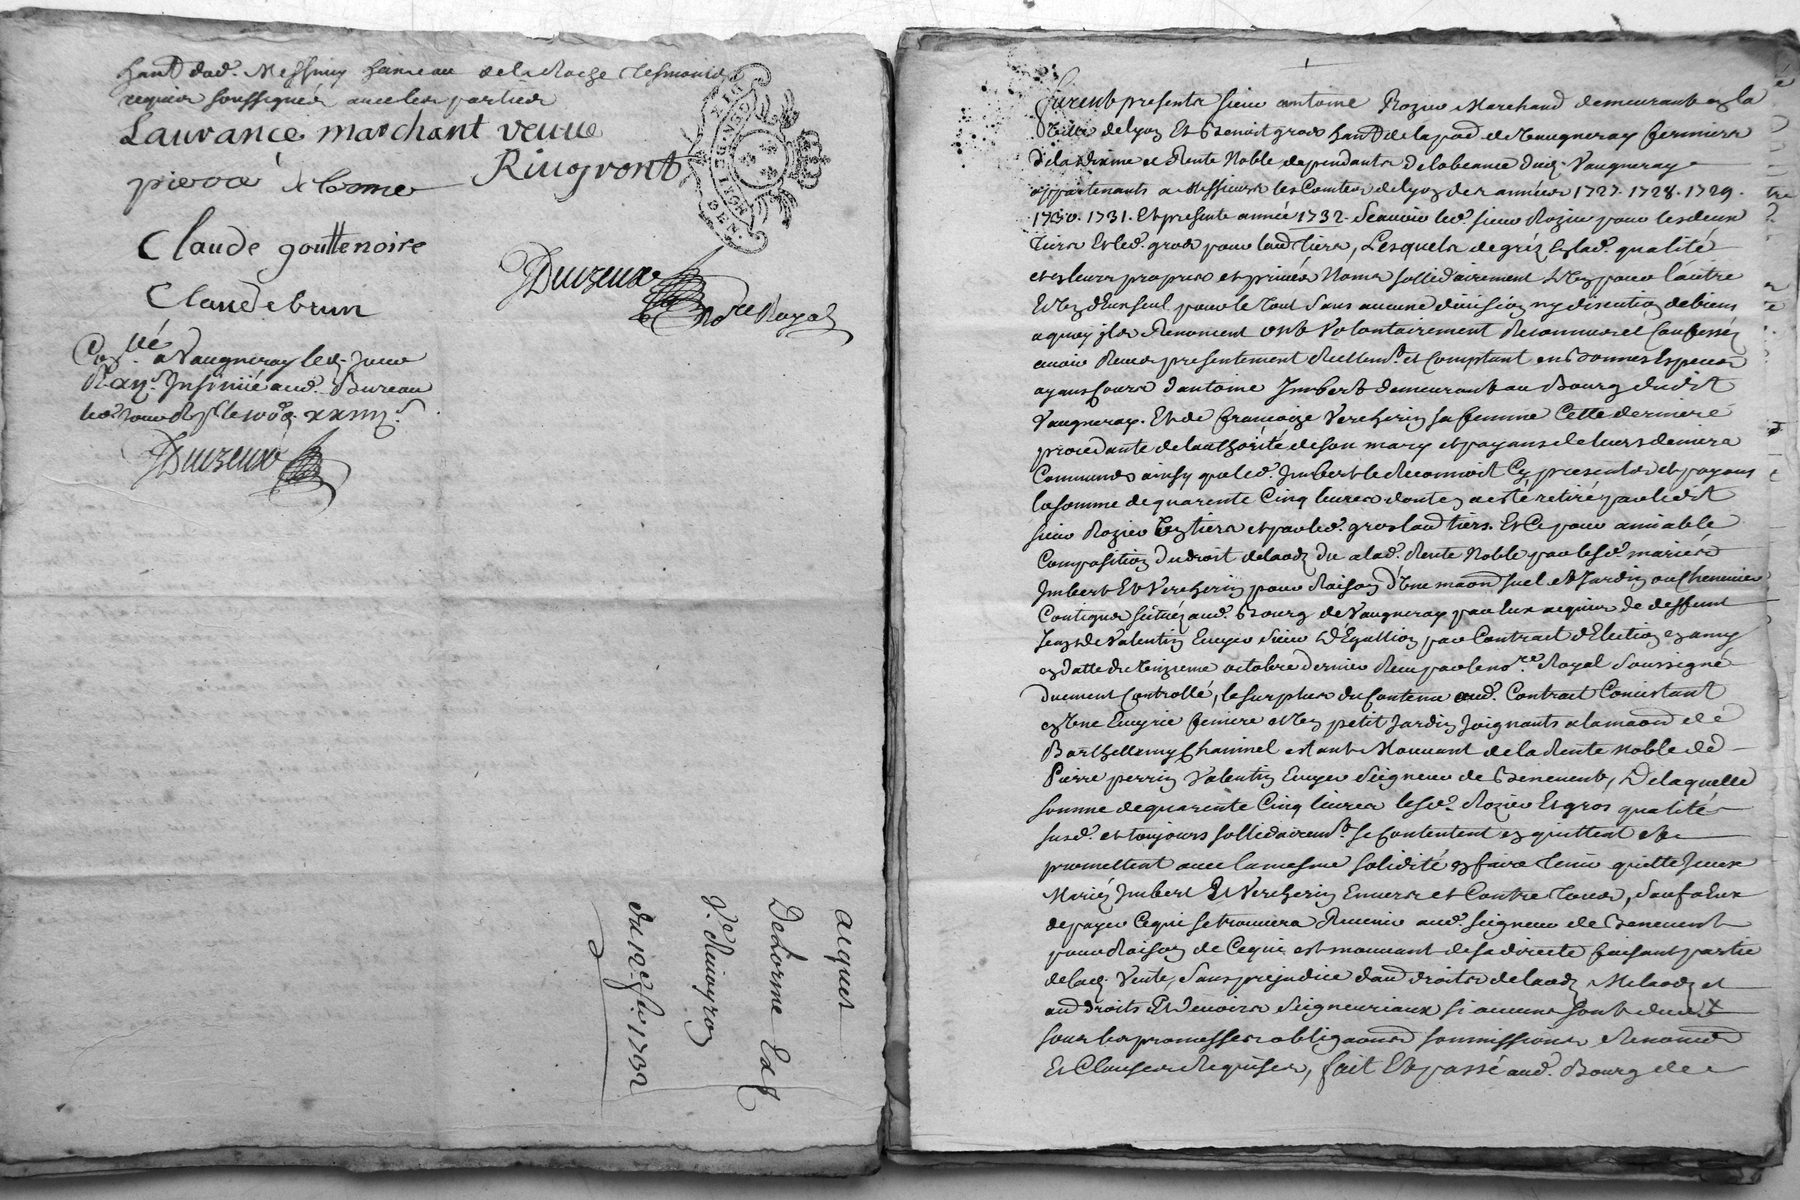 hant dud. Messimy hameau de la Roche tesmoins
requis soussignés avec les parties
Lauvance marchant veuve
Riuoyront
pierre delorme
Claude gouttenoire
Claude brun
Deuzeux
no.re Royal
Con.llé a Vaugneray led. jour
Insinué aud. Bureau
Deuzeux
acquit
Delorme Et
V.e
du 12.e 1732
GEN.
furent presents sieur antoine Rozier Marchand demeurant en la
Ville de lyon Et Benoit gros hant de la par de Vaugneray fermiers
de la dixme et Rente Noble dependants de lobeance dud. Vaugneray
appartenants a Messieurs les Comtes de lyon des années 1727. 1728. 1729.
1730. 1731. Et presente année 1732. Scavoir led. sieur Rozier pour les deux
tiers Et led. gros pour laud tiers, Lesquels de gréz Esd. qualité
et en leurs propres et privés Noms sollidairement L'un pour l'autre
Et un d'eux seul pour le tout sans aucune division ny discution de biens
a quoy ils Renoncent ont Volontairement Reconnus et Confessé
avoir Receu presentement Reellem.t et Comptant en Bonnes Especes
ayans Cours d'antoine Imbert demeurant au Bourg dudit
Vaugneray. Et de françoise Vercherin sa femme Cette derniere
procedante de l'authorité de son mary et payans de leurs deniers
Communs ainsy que led. Imbert le Reconnoit Cy presents et payans
la somme de quarente Cinq livres dont en a esté retiré par ledit
sieur Rozier tiers et par led. gros laud tiers. Et Ce pour amiable
Composition du droit de laod du a lad. Rente Noble par lesd. mariés
Imbert Et Vercherin pour Raison d'Une maon suel et Jardin ou Chenevier
Contigus situés aud. Bourg de Vaugneray par Eux acquis de deffunt
Jean de Valentin Ecuyer sieur D'Eguillion par Contract d'Election en amy
en datte du treizieme octobre dernier Receu par le no.re Royal Soussigné
duement Controllé, le surplus du Contenu aud. Contract Consistant
en Une Ecuyrie feniere et Un petit Jardin Joignants a la maon de
Barthellemy Chavinel estant Mouvant de la Rente Noble de
Pierre perrin Valentin Ecuyer Seigneur de Benevent, De laquelle
somme de quarente Cinq livres lesd. Rozier Et gros qualité
susd. et toujours sollidairem.t se Contentent en quittent et
promettent avec la mesme solidité en faire tenir quitte Iceux
Mariés Imbert Et Vercherin Envers et Contre tous, Sauf a Eux
de payer Ce qui se trouvera Revenir aud. seigneur de Benevent
pour Raison de Ce qui est mouvant de sa directe faisant partie
de lad. Vente, Sans prejudice d'aud droits de laod, Milaod et
aud droits Et devoirs Seigneuriaux si aucuns sont deubt
sous les promesses obligaons soumissions Renonc.
Et Clauses Requises, fait Et passé aud. Bourg de